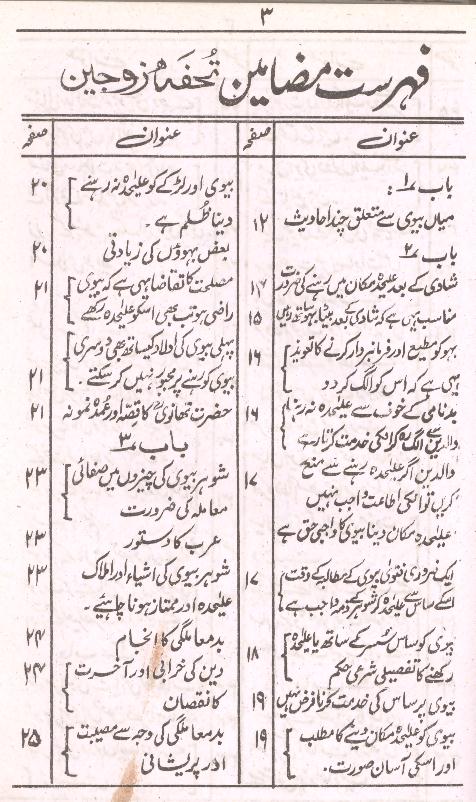 ۳
فہرست مضامین تحفہ زوجین
عنوان صفحہ
باب ۱ :
میاں بیوی سے متعلق چند احادیث ۱۲
باب ۲
شادی کے بعد علیحدہ مکان میں رہنے کی ضرورت ۱۴
مناسب یہی ہے کہ شادی کے بعد بیٹا بہو ساتھ نہ رہیں ۱۵
بہو کو مطیع اور فرمانبردار کرنے کا تعویذ ۱۶
یہی ہے کہ اس کو الگ کر دو
بدنامی کے خوف سے علیحدہ نہ رہنا ۱۶
والدین سے الگ رہ کر انکی خدمت کرتا رہے
والدین اگر علیحدہ رہنے سے منع ۱۷
کریں تو انکی اطاعت واجب نہیں
علیحدہ مکان دینا بیوی کا واجبی حق ہے
ایک ضروری فتویٰ بیوی کے مطالبہ کے وقت ۱۷
اسکے ساس سے علیحدہ کرنا شوہر کے ذمہ واجب ہے
بیوی کو ساس سسر کے ساتھ یا علیحدہ ۱۸
رکھنے کا تفصیلی شرعی حکم
بیوی پر ساس کی خدمت کرنا فرض نہیں ۱۹
بیوی کو علیحدہ مکان دینے کا مطلب ۱۹
اور اسکی آسان صورت۔
عنوان صفحہ
بیوی اور لڑکے کو علیحدہ نہ رہنے ۲۰
دینا ظلم ہے۔
بعض بہوؤں کی زیادتی ۲۰
مصلحت کا تقاضا یہی ہے کہ بیوی ۲۱
راضی ہو تب بھی اسکو علیحدہ رکھے
پہلی بیوی کی اولاد کیساتھ بھی دوسری
بیوی کو رہنے پر مجبور نہیں کر سکتے۔ ۲۱
حضرت تھانوی کا قصہ اور عمدہ نمونہ ۲۱
باب ۳
شوہر بیوی کی چیزوں میں صفائی ۲۳
معاملہ کی ضرورت
عرب کا دستور ۲۳
شوہر بیوی کی اشیاء اور املاک ۲۳
علیحدہ اور ممتاز ہونا چاہیئے۔
بدمعاملگی کا انجام ۲۴
دین کی خرابی اور آخرت ۲۴
کا نقصان
بدمعاملگی کی وجہ سے مصیبت ۲۵
اور پریشانی